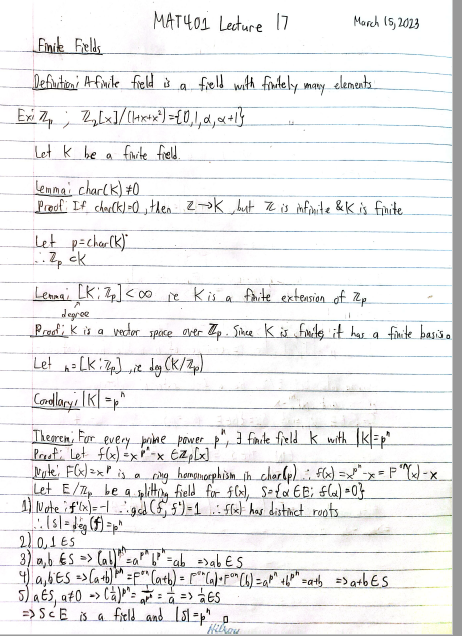 MAT401 Lecture 17
March 15, 2023
Finite Fields
Definition: A finite field is a field with finitely many elements.
Ex: ℤₚ ; ℤ₂[x]/(1+x+x²)={0,1,α,α+1}
Let K be a finite field.
Lemma: char(K)≠0
Proof: If char(K)=0, then ℤ→K, but ℤ is infinite & K is finite
Let p=char(K)
∴ ℤₚ⊂K
Lemma: [K:ℤₚ]<∞ ie K is a finite extension of ℤₚ
degree
Proof: K is a vector space over ℤₚ. Since K is finite, it has a finite basis.
Let n=[K:ℤₚ], ie deg(K/ℤₚ)
Corollary: |K|=pⁿ
Theorem: For every prime power pⁿ, ∃ finite field K with |K|=pⁿ
Proof: Let f(x)=x^pⁿ-x ∈ℤₚ[x]
Note: F(x)=x^p is a ring homomorphism in char(p) ∴ f(x)=x^pⁿ-x=F^∘ⁿ(x)-x
Let E/ℤₚ be a splitting field for f(x), S={α∈E; f(α)=0}
1) Note: f'(x)=-1 ∴gcd(f,f')=1 ∴f(x) has distinct roots
∴|S|=deg(f)=pⁿ
2) 0,1∈S
3) a,b∈S ⇒(ab)^pⁿ=a^pⁿb^pⁿ=ab ⇒ab∈S
4) a,b∈S ⇒(a+b)^pⁿ=F^∘ⁿ(a+b)=F^∘ⁿ(a)+F^∘ⁿ(b)=a^pⁿ+b^pⁿ=a+b ⇒a+b∈S
5) a∈S, a≠0 ⇒(1/a)^pⁿ=1/a^pⁿ=1/a ⇒1/a∈S
⇒S⊂E is a field and |S|=pⁿ □
Hilroy